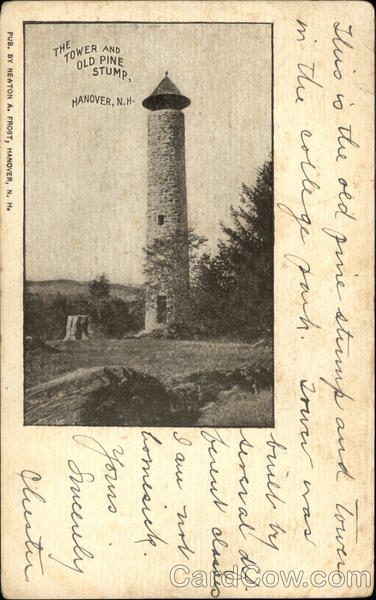 PUB. BY NEWTON A. FROST, HANOVER, N. H.
THE
TOWER AND
OLD PINE
STUMP,
HANOVER, N.H.
This is the old pine stump and tower
in the college park. Tower was
built by
several dif-
ferent classes
I am not
homesick.
Yours
Sincerely
Chester
CardCow.com